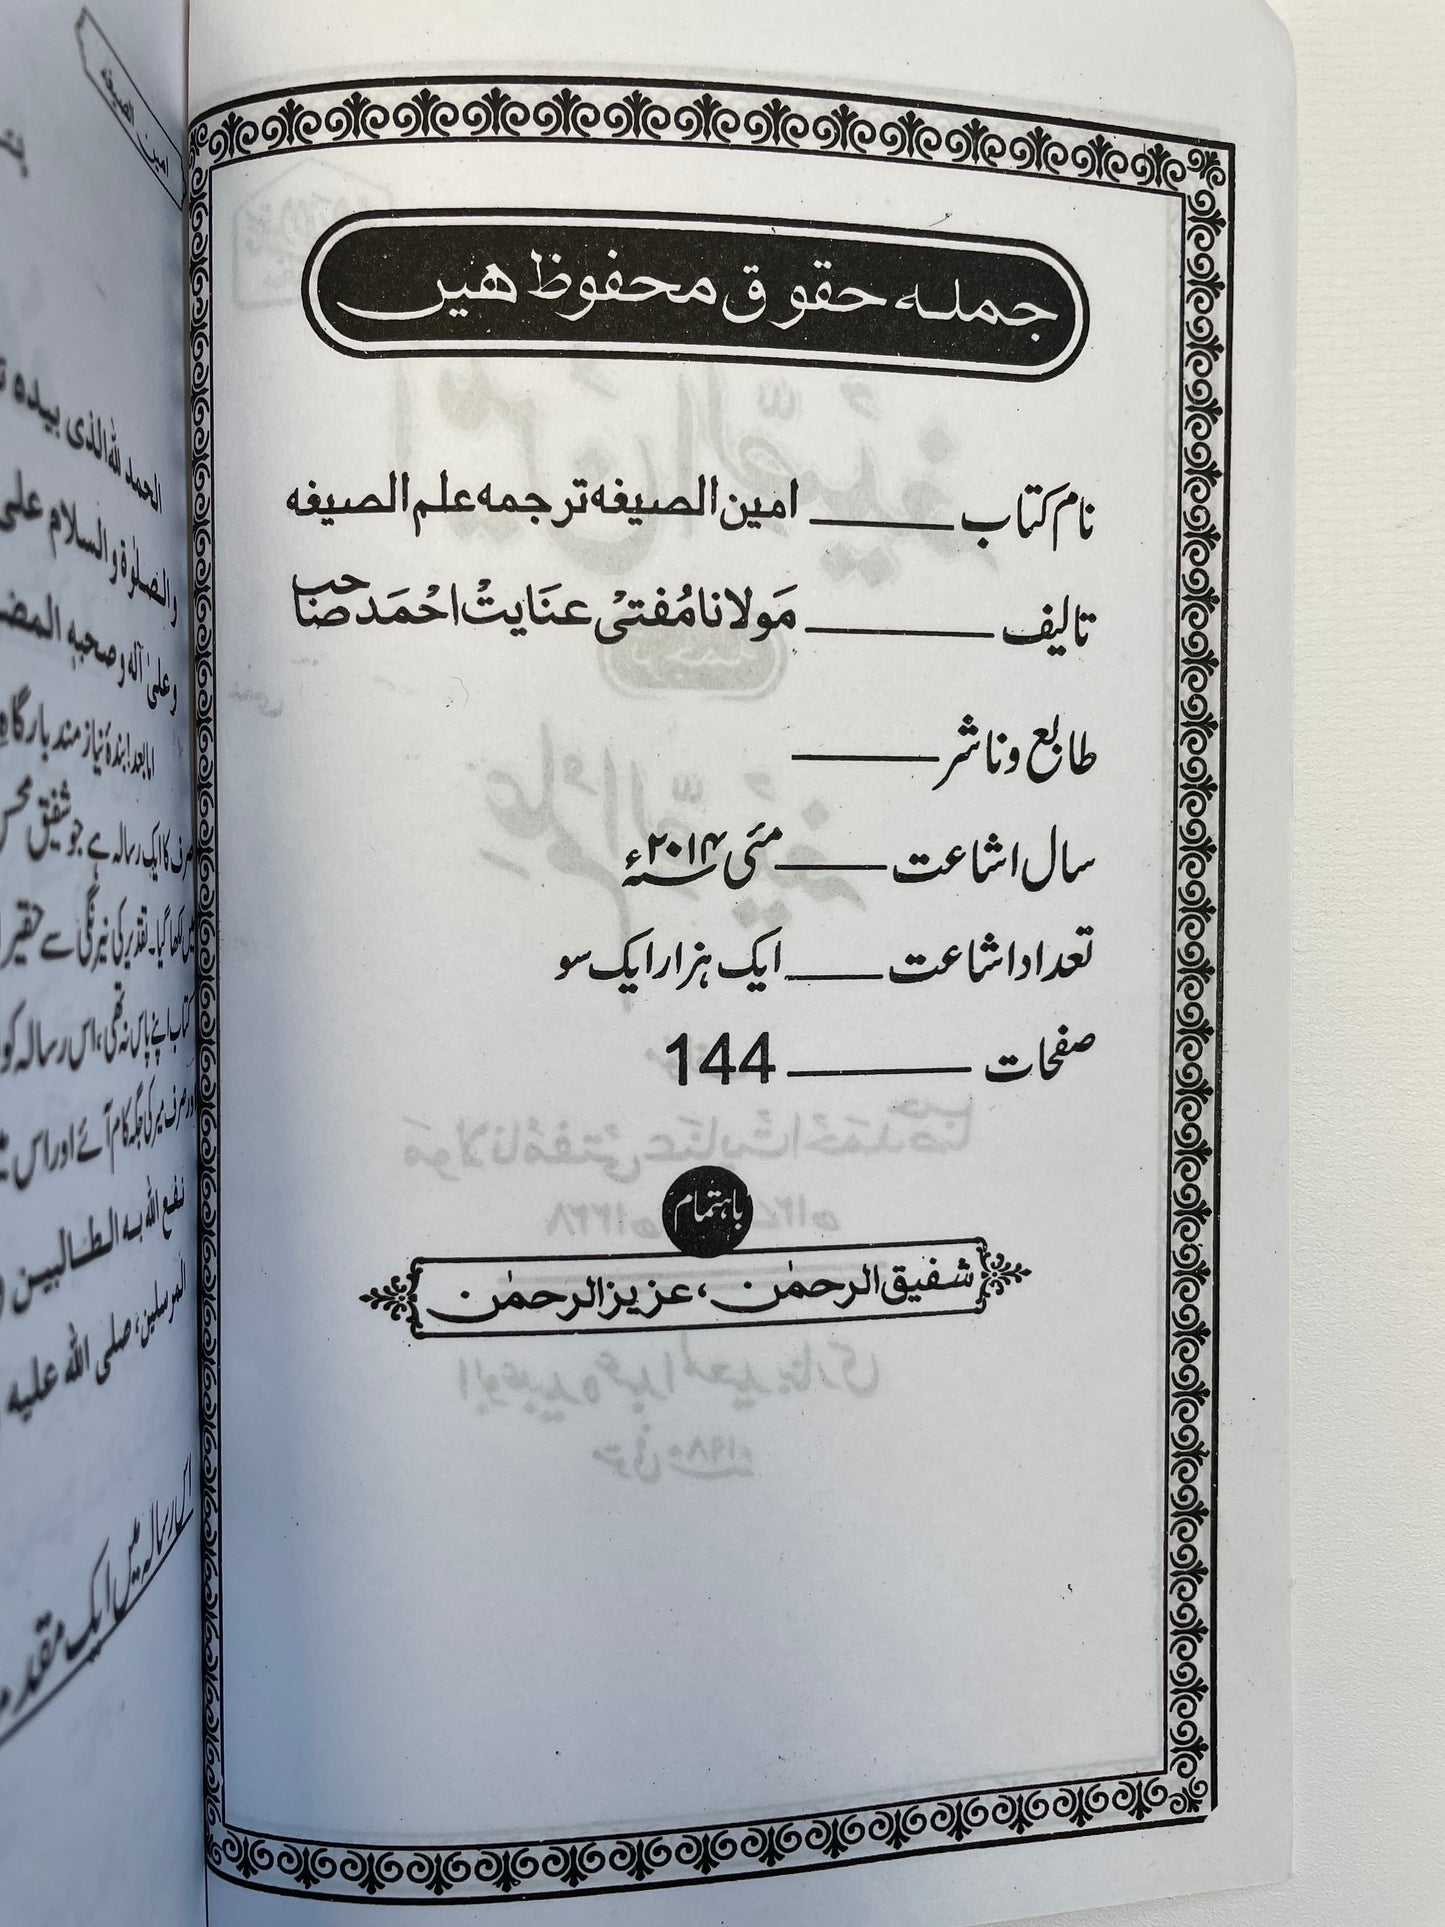 جملہ حقوق محفوظ ھیں
نام کتاب ____ امین الصیغه ترجمه علم الصیغه
تالیف ____ مَولانا مُفتیْ عنَایتْ احْمَد صَاحب
طابع و ناشر ____
سال اشاعت ____ مئی ۲۰۱۴ء
تعداد اشاعت ____ ایک ہزار ایک سو
صفحات ____ 144
باہتمام
شفیق الرحمٰن، عزیز الرحمٰن
امین الصیغه
الحمد للہ الذی بیدہ
والصلوٰة والسلام علی
وعلیٰ آله وصحبه
امابعد! بندۂ نیاز مند بارگاہ
صرف کا ایک رسالہ ہے جو شفیق
میں لکھا گیا۔ تقدیر کی نیرنگی سے حقیر
کتاب اپنے پاس نہ تھی، اس رسالہ کو
اور صرف میر کی جگہ کام آئے اور اس
نفع اللہ به الطالبین
المرسلین، صلی اللہ علیه
اس رسالہ میں ایک